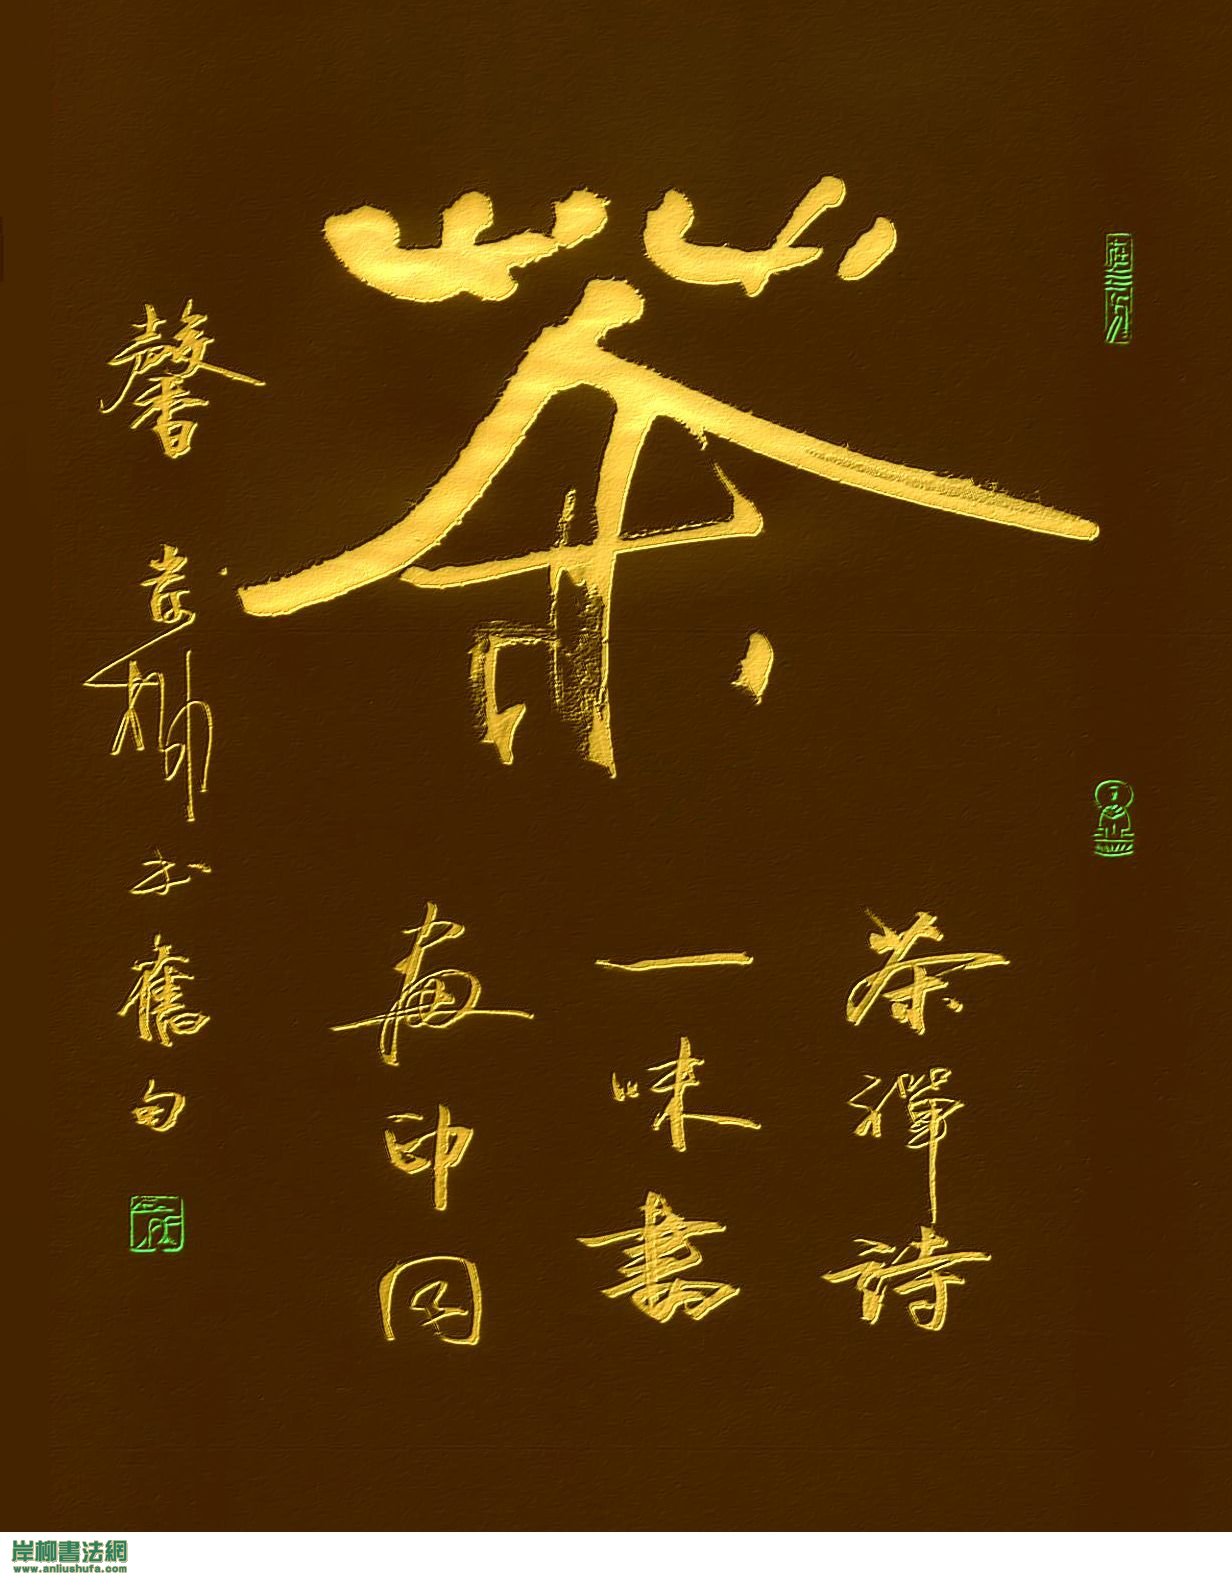 茶
茶禪詩
一味書
畫印同
馨
岸柳书舊句
岸柳書法網
www.anliushufa.com